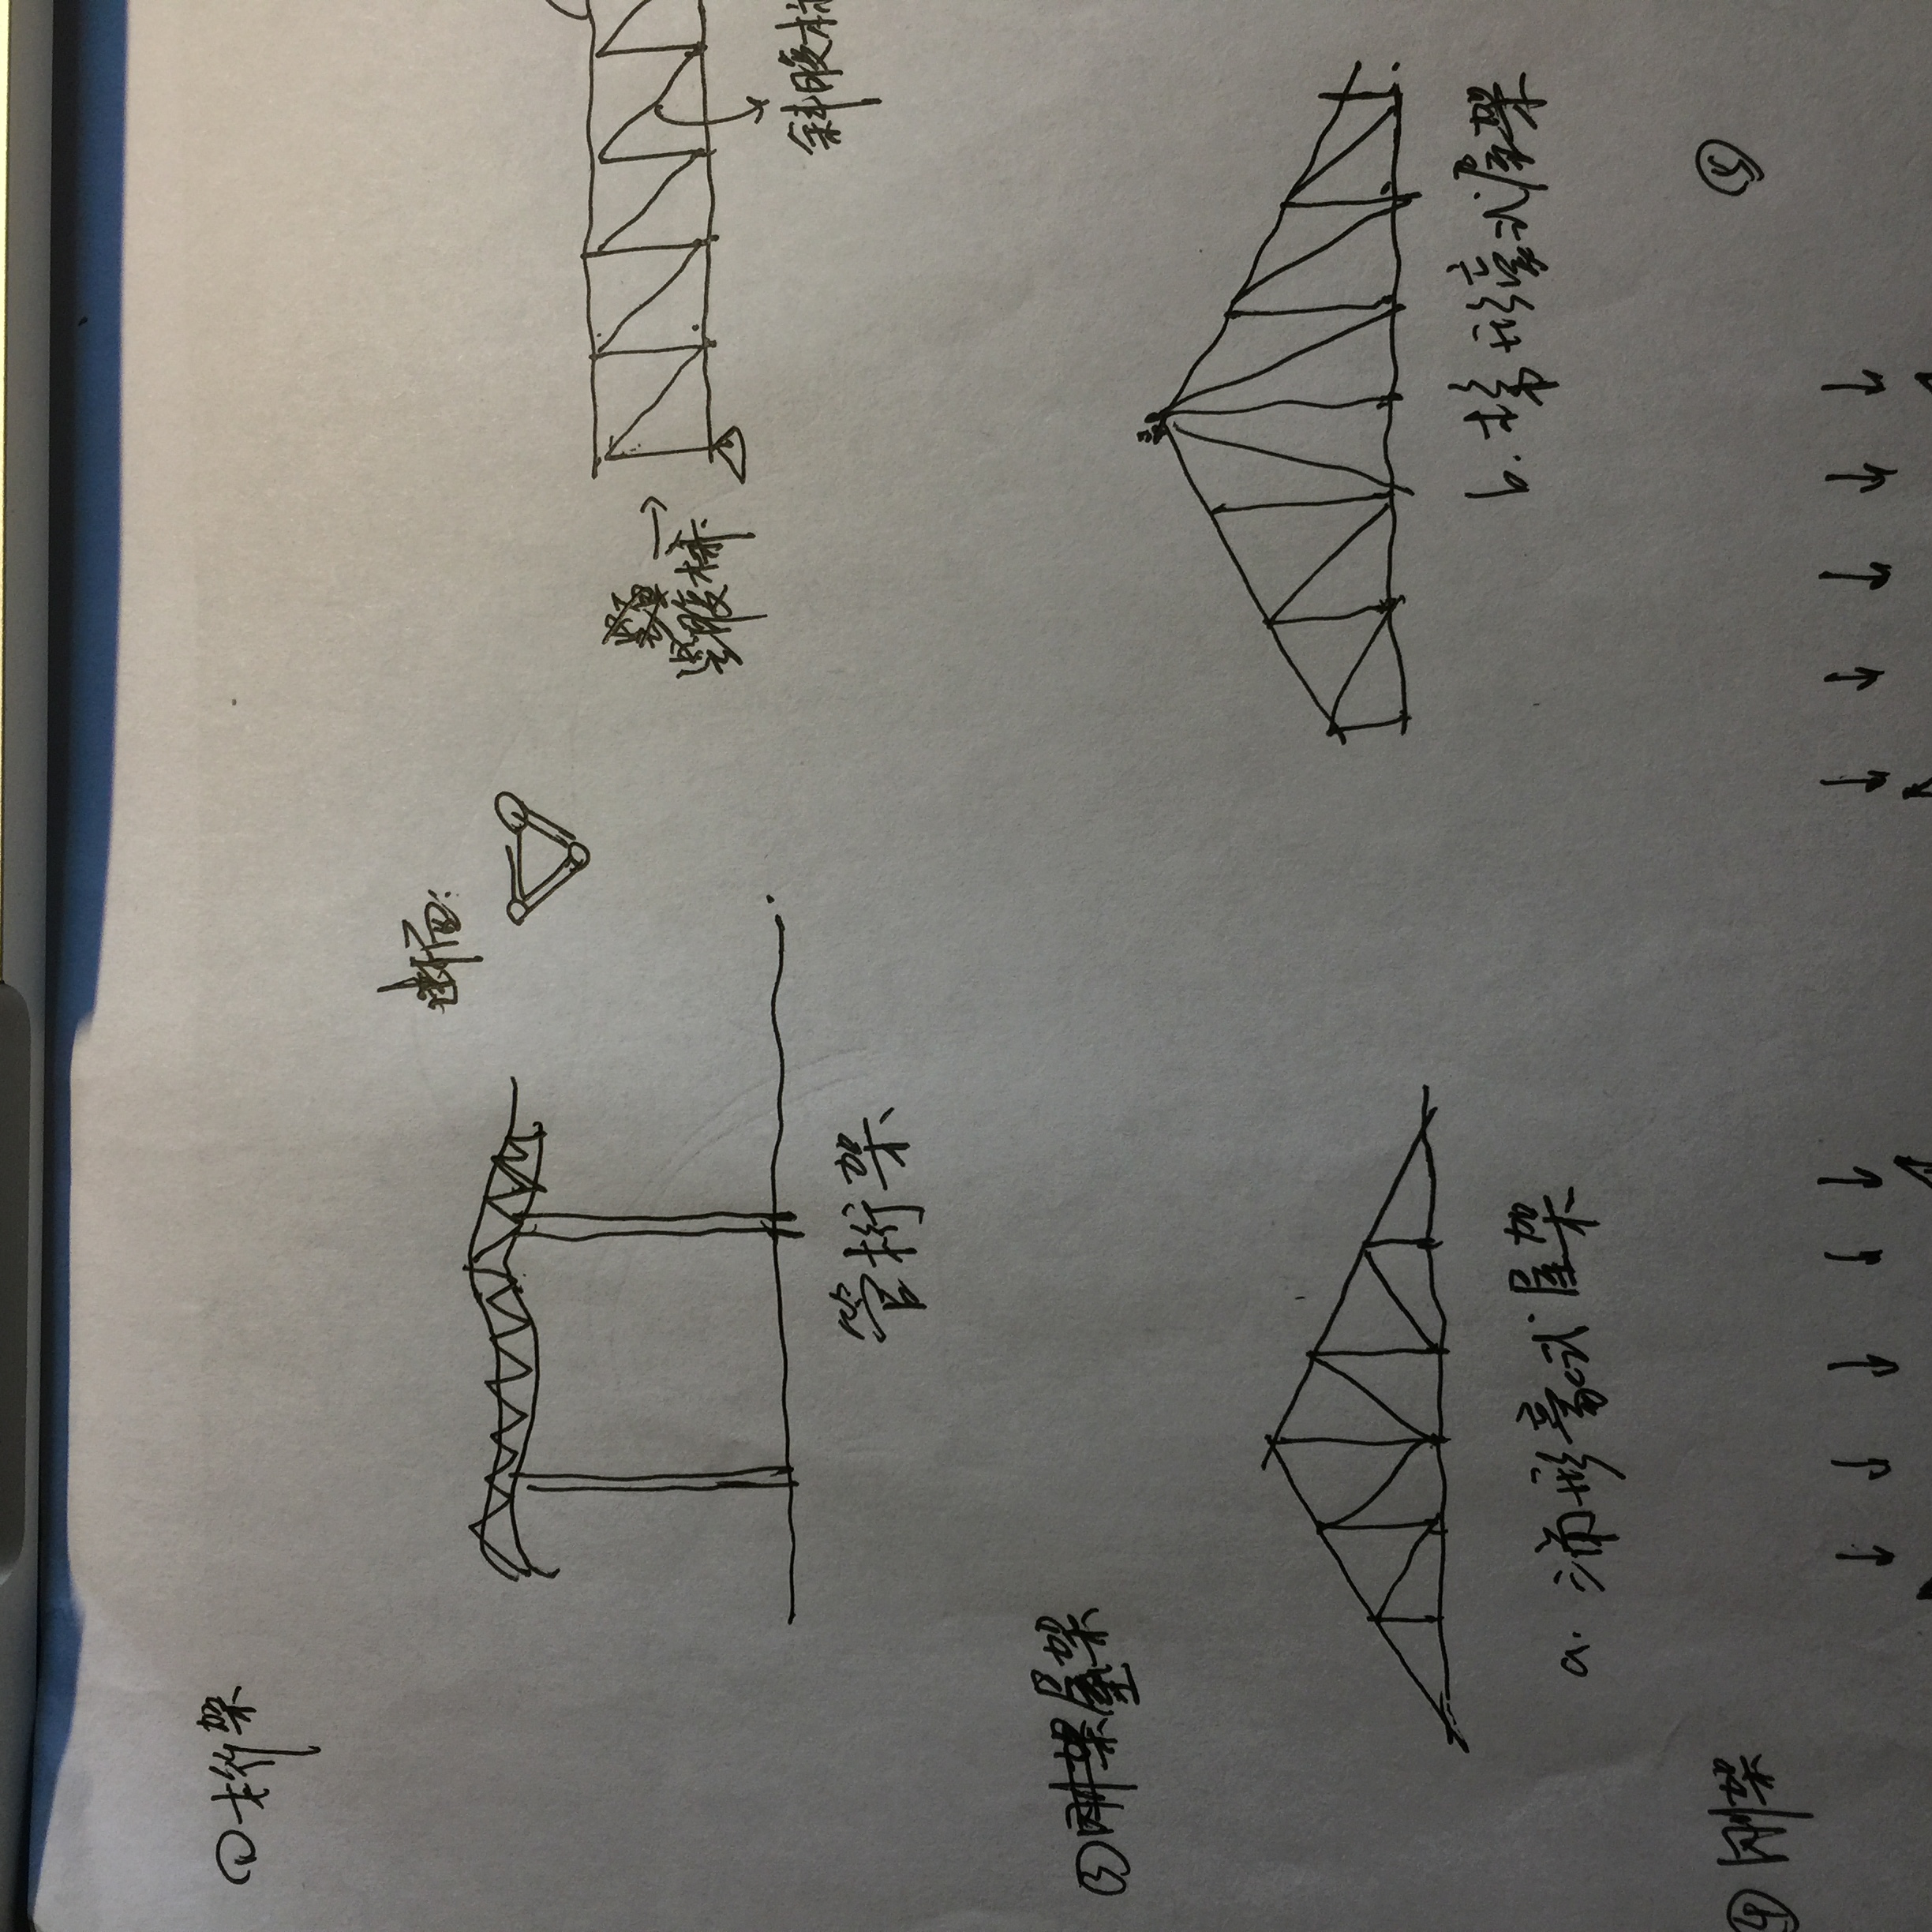 ① 桁架
断面:
竖腹杆
斜腹杆
管桁架
③ 屋架
a. 三角形豪式屋架
b. 梯形豪式屋架
④ 刚架
⑤